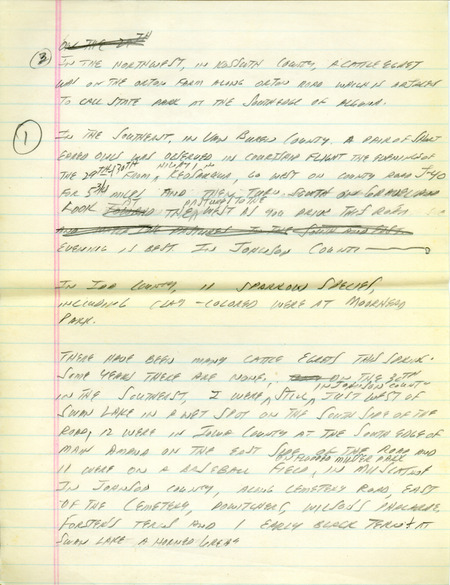 ON THE 29TH
(3) IN THE NORTHWEST, IN KOSSUTH COUNTY, A CATTLE EGRET
WAS ON THE ORTON FARM ALONG ORTON ROAD WHICH IS
TO CALL STATE PARK AT THE SOUTH EDGE OF ALGONA.
(1) IN THE SOUTHEAST, IN VAN BUREN COUNTY A PAIR OF SHORT
EARED OWLS WAS OBSERVED IN COURTSHIP FLIGHT THE EVENINGS OF
THE 29TH & 30TH FROM KEOSAUQUA, GO WEST ON COUNTY ROAD J-40
FOR 5 3/4 MILES AND THEN TURN SOUTH ON GRAVEL AND
LOOK AT THE PASTURES TO THE WEST AS YOU DRIVE THIS ROAD
AND WATCH THE PASTURES TO THE SOUTH AND
EVENING IS BEST. IN JOHNSON COUNTY
IN IDA COUNTY, 11 SPARROW SPECIES,
INCLUDING CLAY-COLORED WERE AT MOORHEAD
PARK.
THERE HAVE BEEN MANY CATTLE EGRETS THIS SPRING.
SOME YEARS THERE ARE NONE. ON THE 30TH
IN THE SOUTHEAST, 2 WERE STILL IN JOHNSON COUNTY JUST WEST OF
SWAN LAKE IN A WET SPOT ON THE SOUTH SIDE OF THE
ROAD, 12 WERE IN IOWA COUNTY AT THE SOUTH EDGE OF
MAIN AMANA ON THE EAST SIDE OF THE ROAD AND
11 WERE ON A BASEBALL FIELD, IN PARK IN MUSCATINE
IN JOHNSON COUNTY, ALONG CEMETERY ROAD, EAST
OF THE CEMETERY, DOWITCHERS, WILSON'S PHALAROPE,
FORSTER'S TERNS AND 1 EARLY BLACK TERN & AT
SWAN LAKE A HORNED GREBE